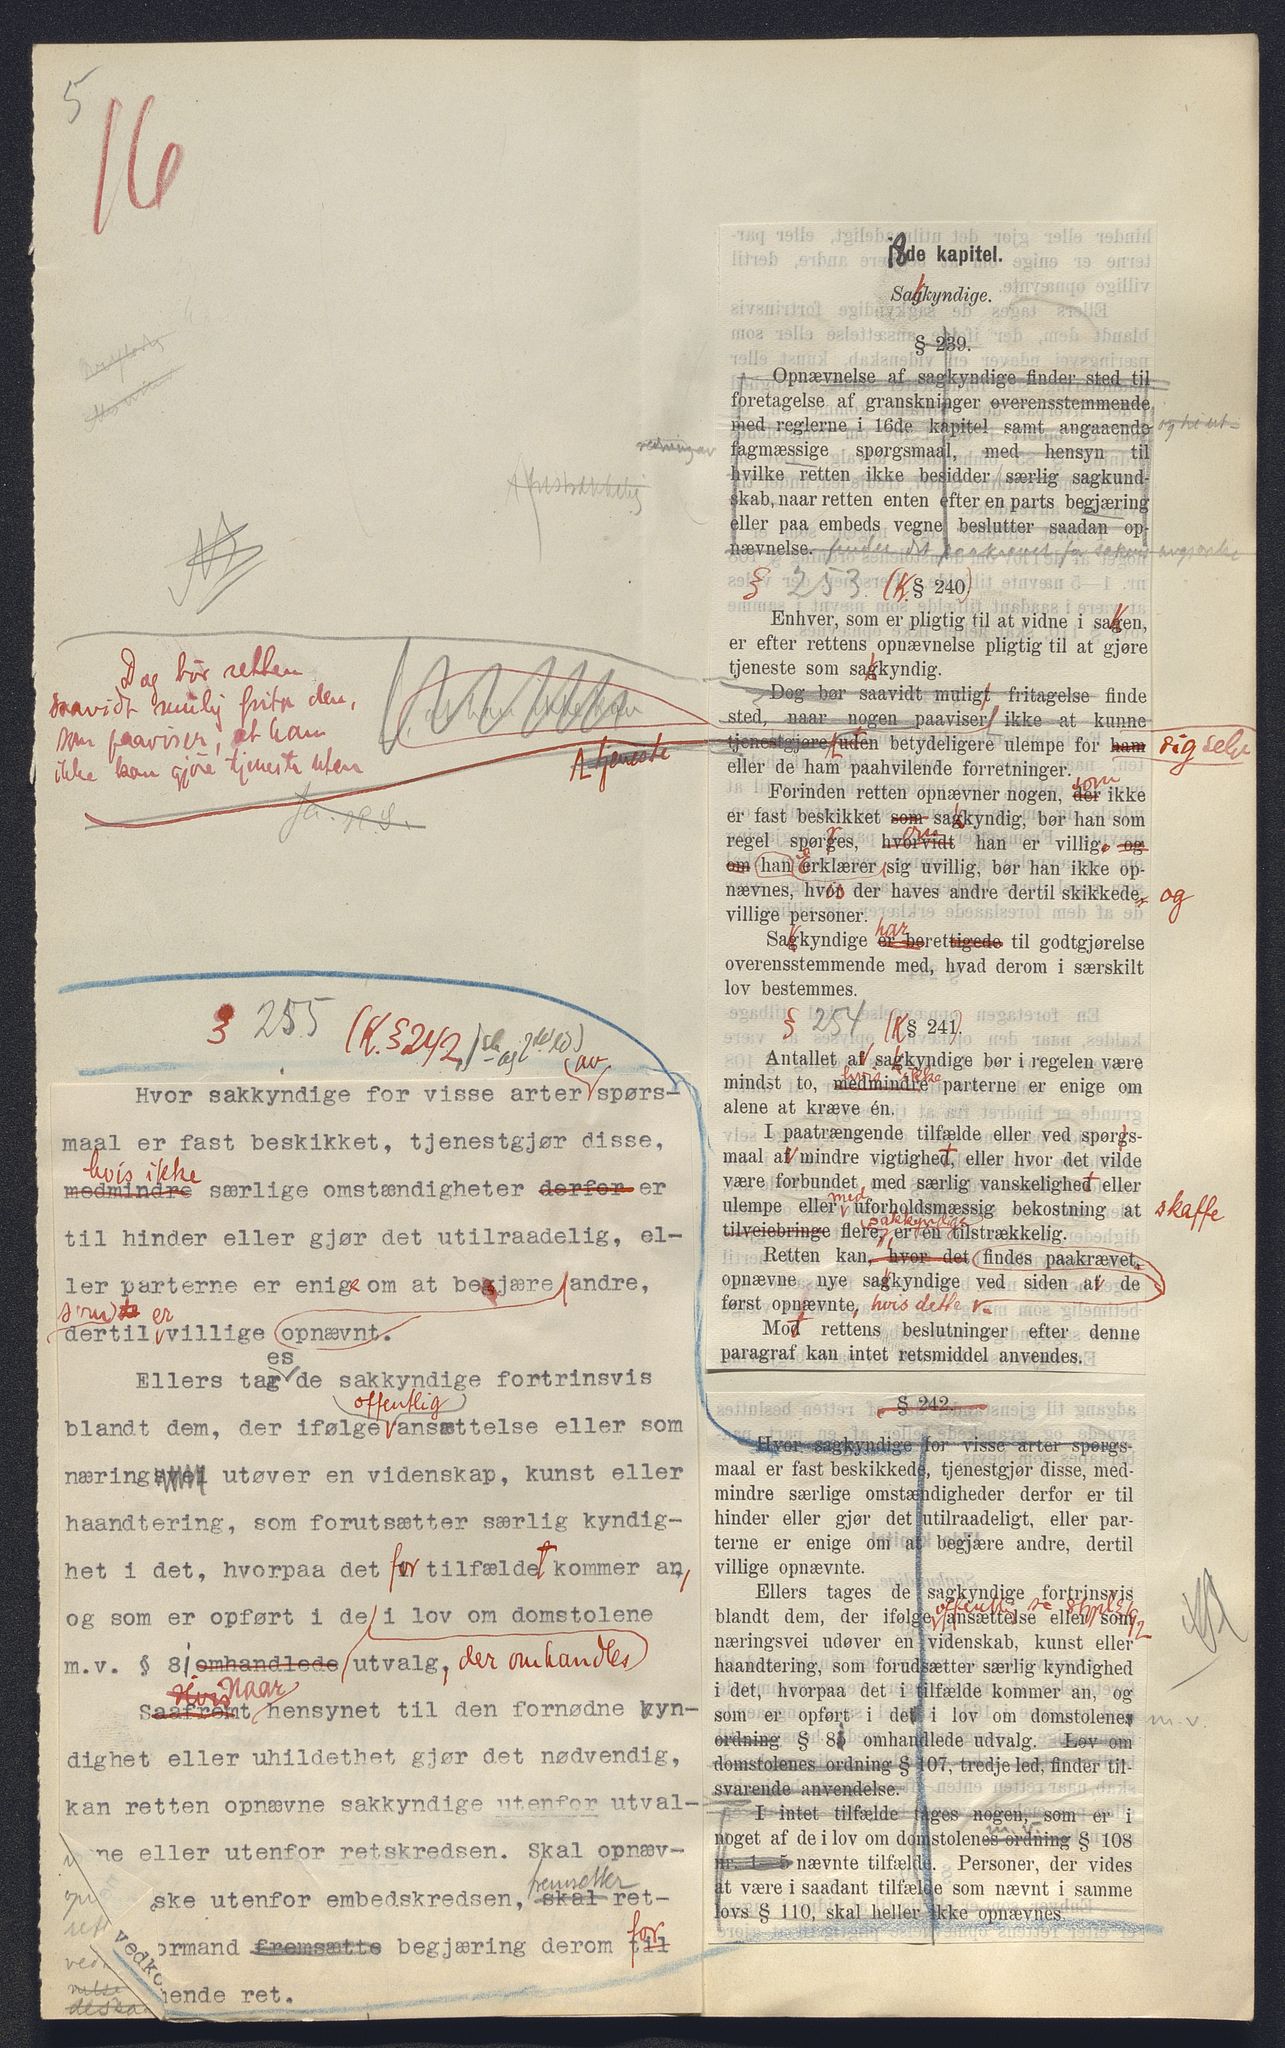 5
16
18de kapitel.
Sakkyndige.
§ 239.
Opnævnelse af sagkyndige finder sted til
foretagelse af granskninger overensstemmende
med reglerne i 16de kapitel samt angaaende
fagmæssige spørgsmaal, med hensyn til
hvilke retten ikke besidder særlig sagkund-
skab, naar retten enten efter en parts begjæring
eller paa embeds vegne beslutter saadan op-
nævnelse. findes det paakrævet for sakens
§ 253. (K. § 240)
Enhver, som er pligtig til at vidne i saken,
er efter rettens opnævnelse pligtig til at gjøre
tjeneste som sakkyndig.
Dog bør saavidt muligt fritagelse finde
sted, naar nogen paaviser ikke at kunne
tjenestgjøre uden betydeligere ulempe for ham sig selv
eller de ham paahvilende forretninger.
Dog bør retten
saavidt mulig frita den,
som paaviser, at han
ikke kan gjøre tjeneste uten
tjeneste
Forinden retten opnævner nogen, der som ikke
er fast beskikket som sakkyndig, bør han som
regel spørges, hvorvidt om han er villig. og
om han erklærer sig uvillig, bør han ikke op-
nævnes, hvis der haves andre dertil skikkede og
villige personer.
Sakkyndige er berettigede har ret til godtgjørelse
overensstemmende med, hvad derom i særskilt
lov bestemmes.
§ 254 (K § 241).
Antallet av sakkyndige bør i regelen være
mindst to, medmindre hvis ikke parterne er enige om
alene at kræve én.
I paatrængende tilfælde eller ved spørs-
maal av mindre vigtighet, eller hvor det vilde
være forbundet med særlig vanskelighet eller
ulempe eller med uforholdsmæssig bekostning at skaffe
tilveiebringe flere sakkyndige, er en tilstrækkelig.
Retten kan, hvor det findes paakrævet,
opnævne nye sakkyndige ved siden av de
først opnævnte, hvis dette
Mot rettens beslutninger efter denne
paragraf kan intet retsmiddel anvendes.
§ 255 (K. § 242,
Hvor sakkyndige for visse arter av spørs-
maal er fast beskikket, tjenestgjør disse,
hvis ikke
medmindre særlige omstændigheter derfor er
til hinder eller gjør det utilraadelig, el-
ler parterne er enige om at begjære andre,
som er
dertil villige opnævnt.
Ellers tages de sakkyndige fortrinsvis
blandt dem, der ifølge offentlig ansættelse eller som
næringsvei utøver en videnskap, kunst eller
haandtering, som forutsætter særlig kyndig-
het i det, hvorpaa det for tilfældet kommer an,
og som er opført i de i lov om domstolene
m.v. § 81 omhandlede utvalg, der omhandles
Hvis Naar
Saafremt hensynet til den fornødne kyn-
dighet eller uhildethet gjør det nødvendig,
kan retten opnævne sakkyndige utenfor utval-
ne eller utenfor retskredsen. Skal opnæv-
ske utenfor embedskredsen, skal fremsetter ret-
ormand fremsætte begjæring derom til for
vedko
ende ret.
§ 242.
Hvor sagkyndige for visse arter spørgs-
maal er fast beskikkede, tjenestgjør disse, med-
mindre særlige omstændigheder derfor er til
hinder eller gjør det utilraadeligt, eller par-
terne er enige om at begjære andre, dertil
villige opnævnte.
Ellers tages de sagkyndige fortrinsvis
blandt dem, der ifølge offentlig ansættelse eller som
næringsvei udøver en videnskab, kunst eller
haandtering, som forudsætter særlig kyndighed
i det, hvorpaa det i tilfælde kommer an, og
som er opført i det i lov om domstolenes m.v.
ordning § 81 omhandlede udvalg. Lov om
domstolenes ordning § 107, tredje led, finder til-
svarende anvendelse.
I intet tilfælde tages nogen, som er i
noget af de i lov om domstolenes ordning m.v. § 108
nr. 1—5 nævnte tilfælde. Personer, der vides
at være i saadant tilfælde som nævnt i samme
lovs § 110, skal heller ikke opnævnes.